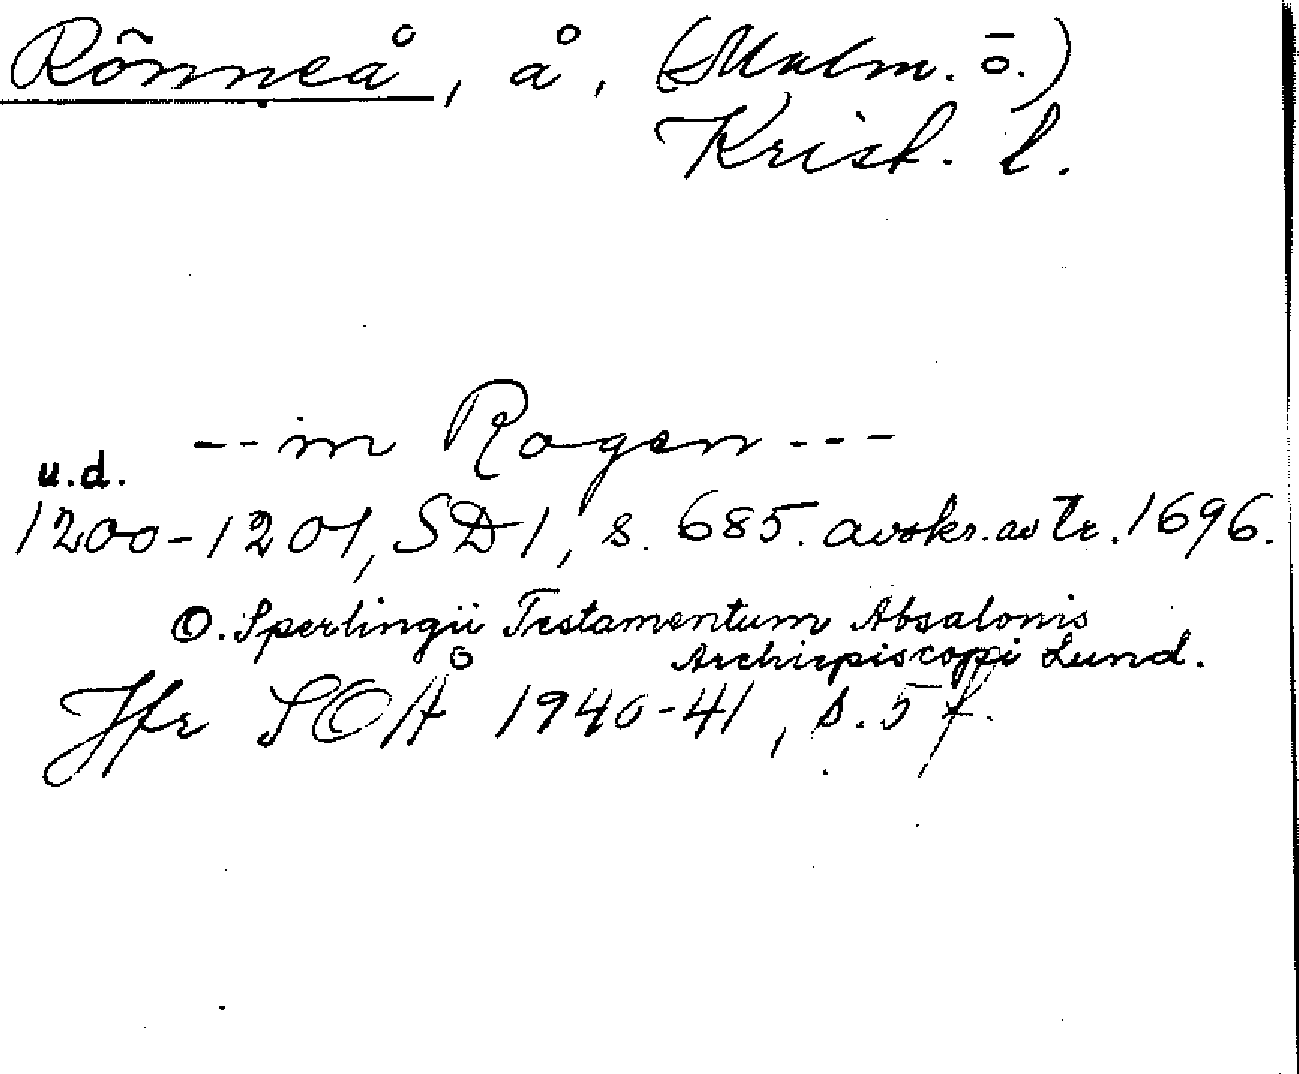 Rönneå, å, (Malm. ö.)
Krist. l.
-- in Rogen ---
u.d.
1200-1201, SD 1, s. 685. avskr. av tr. 1696.
O. Sperlingii Testamentum Absalonis
Archiepiscopi Lund.
Jfr SOÅ 1940-41, s. 5 f.